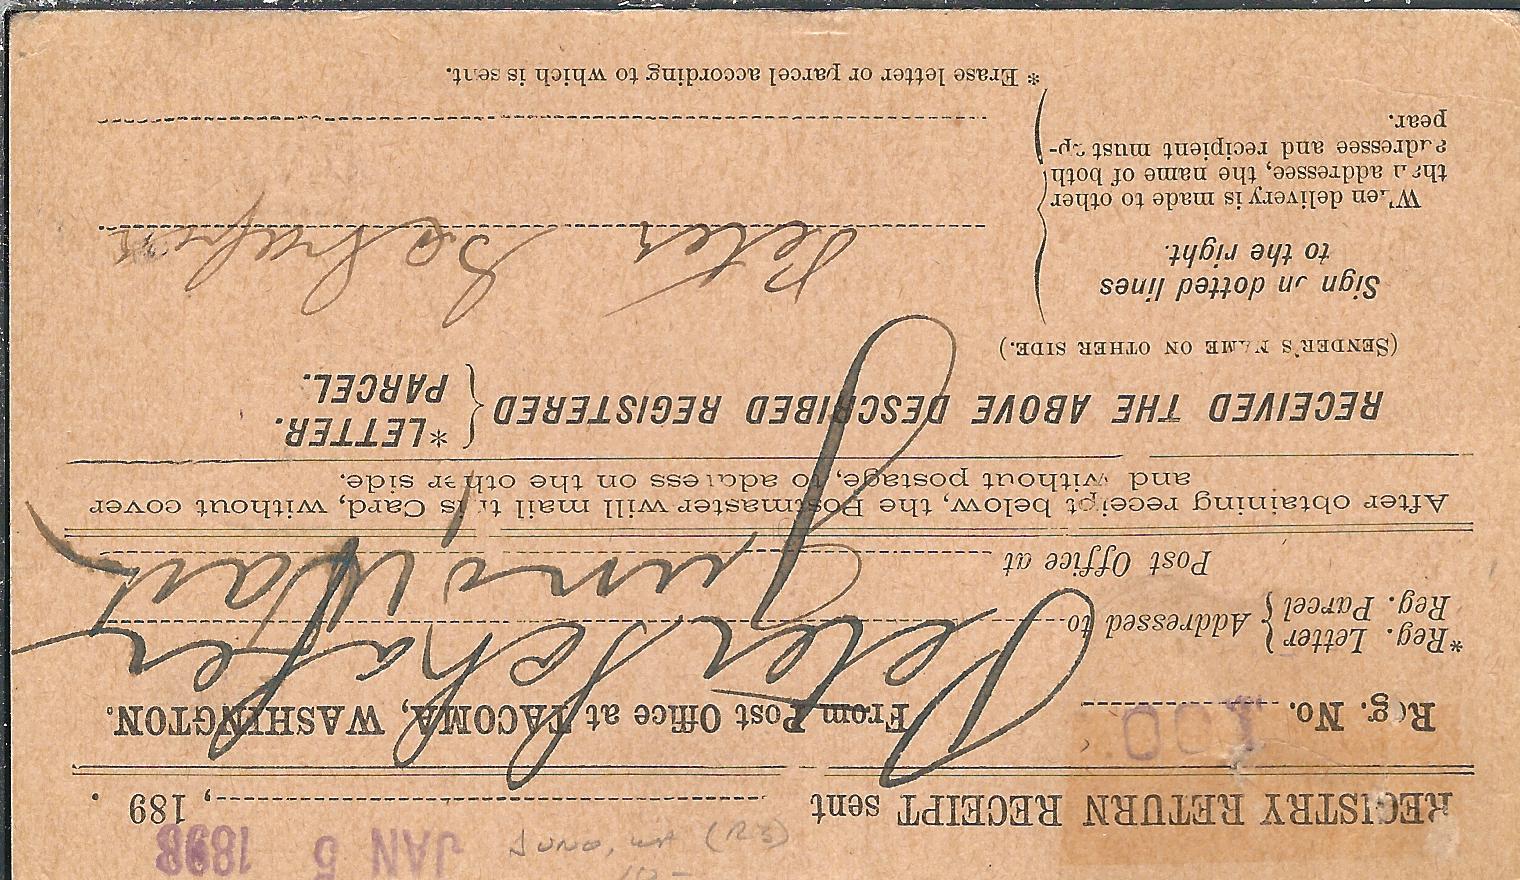 JAN 5 1898
JUNO, WA (R3)
10-
REGISTRY RETURN RECEIPT sent , 189 .
Reg. No. From Post Office at TACOMA, WASHINGTON.
*Reg. Letter
Reg. Parcel } Addressed to Peter Schafer
Post Office at Juno Wash
After obtaining receipt below, the Postmaster will mail this Card, without cover
and without postage, to address on the other side.
RECEIVED THE ABOVE DESCRIBED REGISTERED { *LETTER.
PARCEL.
(SENDER'S NAME ON OTHER SIDE.)
Sign on dotted lines
to the right.
Peter Schafer
When delivery is made to other
than addressee, the name of both
addressee and recipient must ap-
pear.
* Erase letter or parcel according to which is sent.